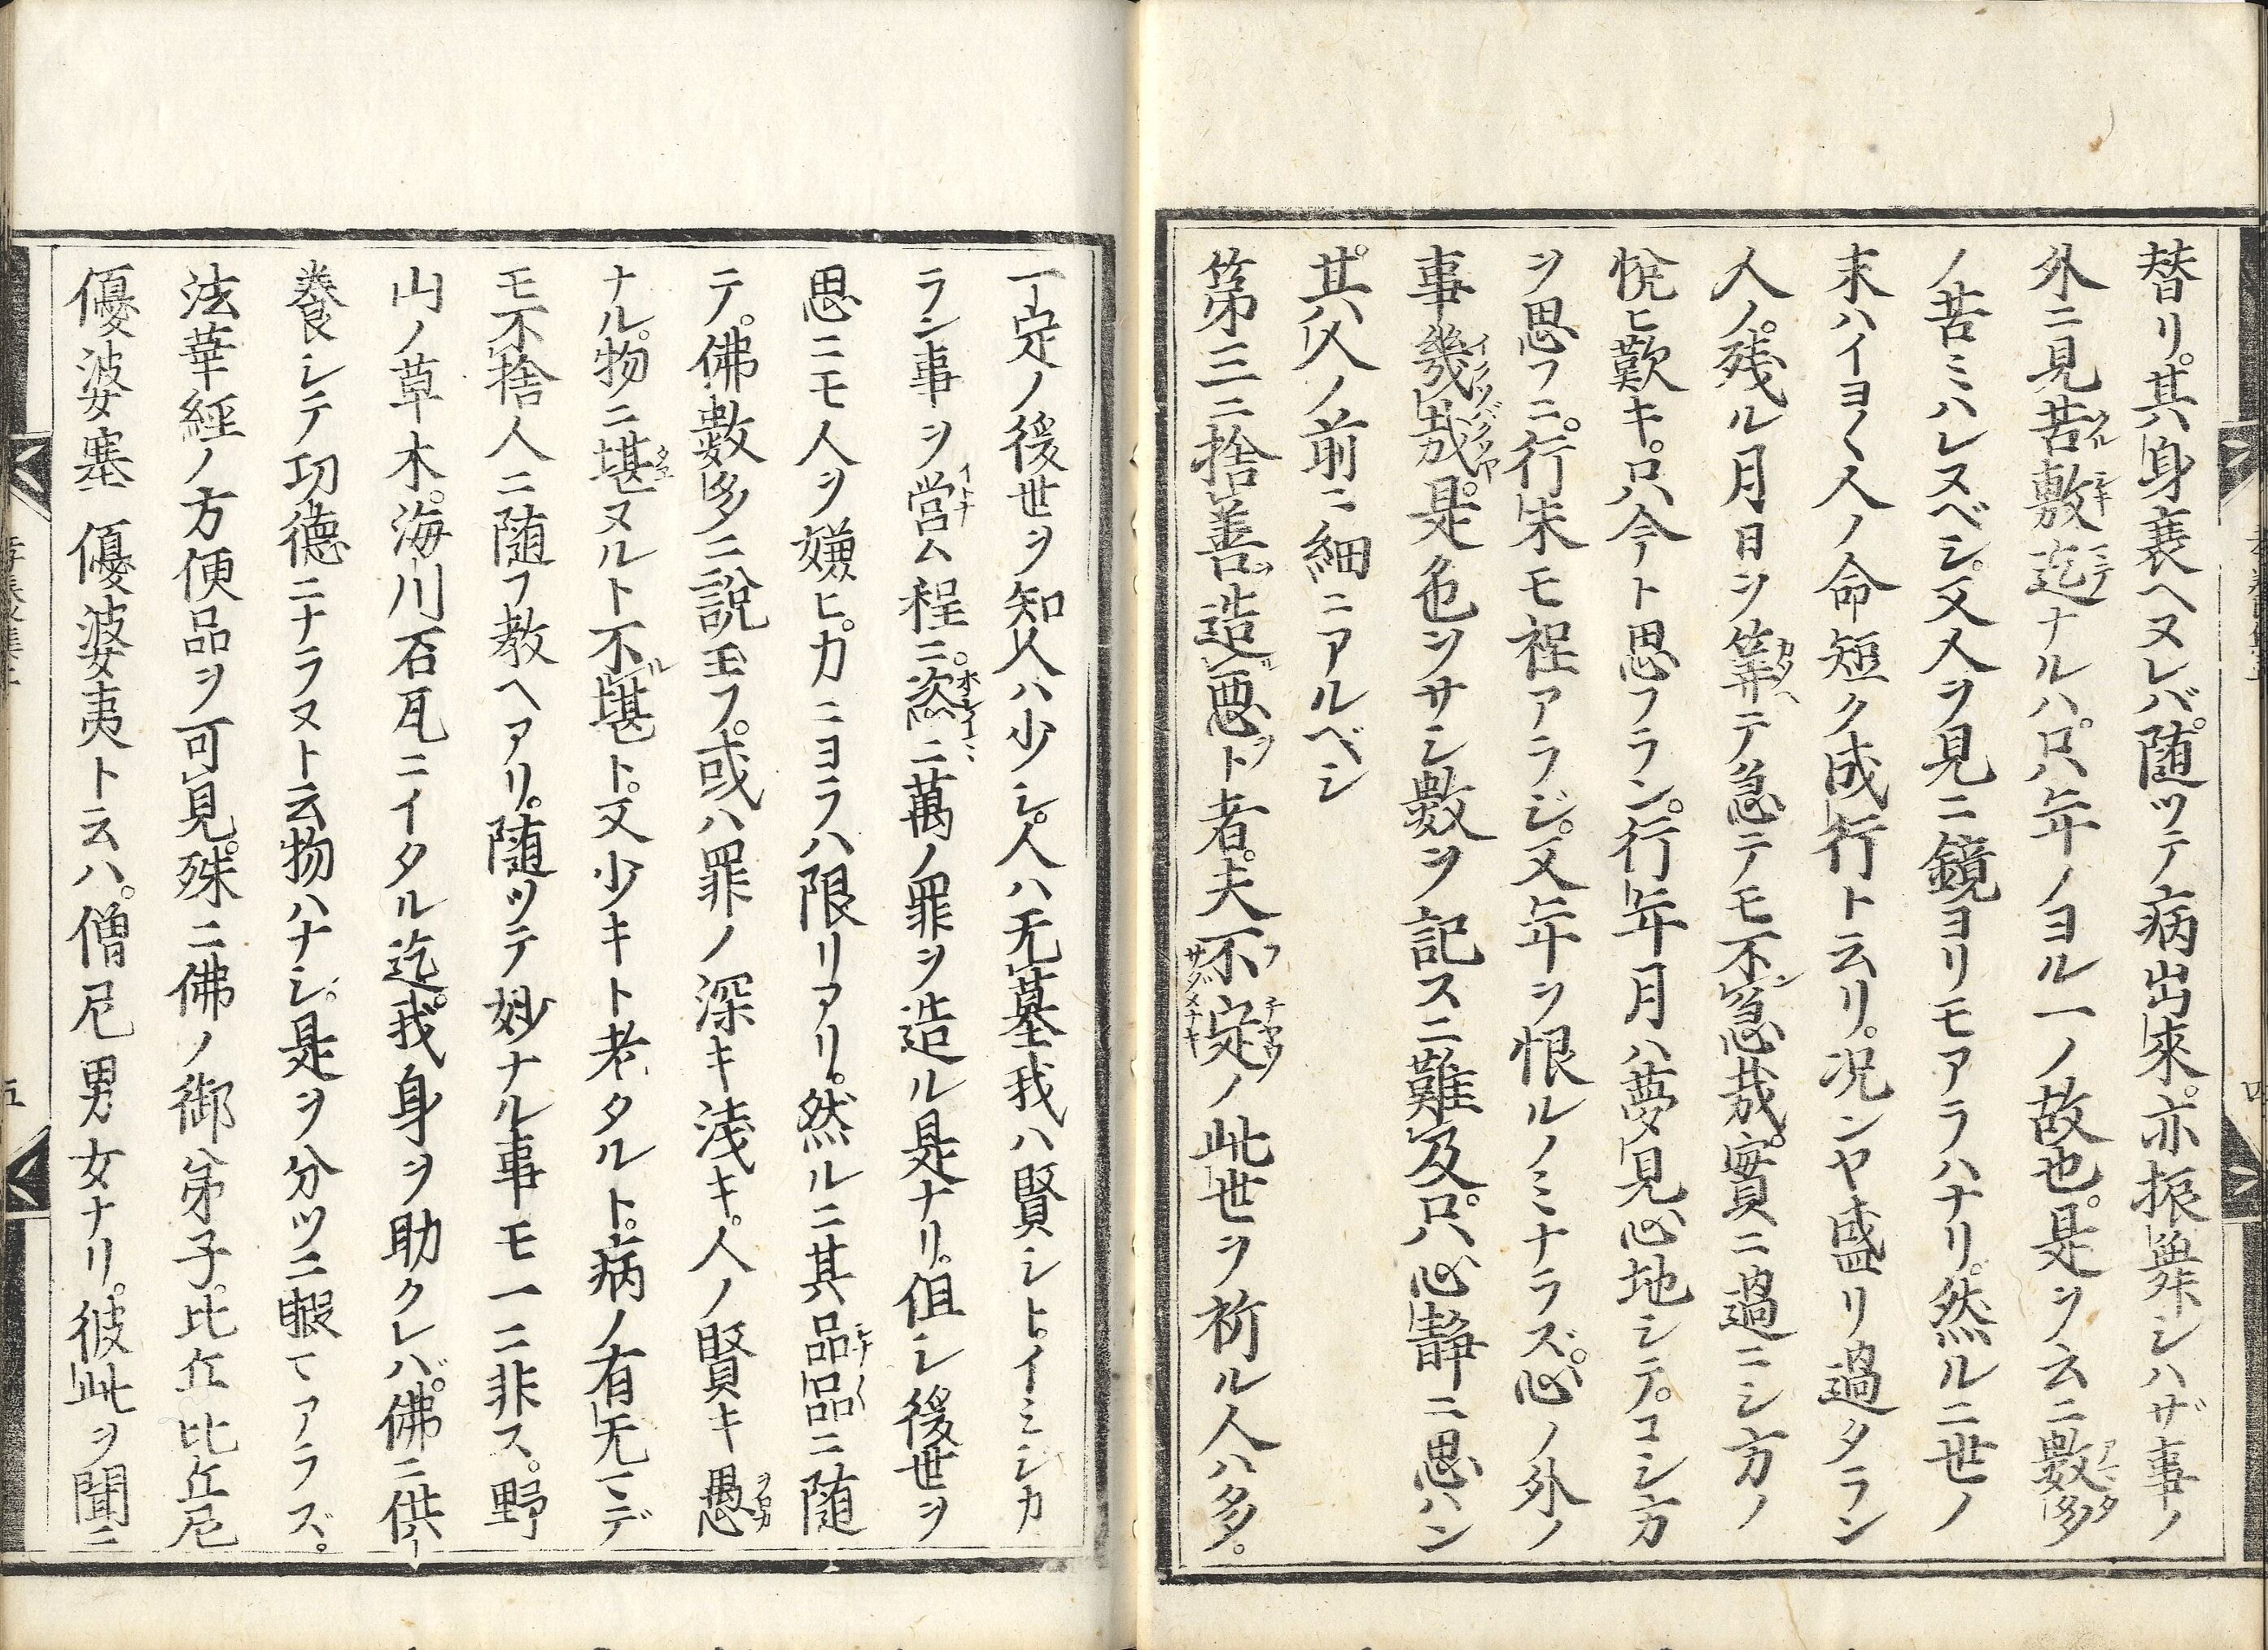 替リ。其身衰ヘヌレバ。随ツテ病出來。亦振舞シハザ事ノ
外ニ見苦敷迄ナルハ。只年ノヨル一ノ故也。是ヲ云ニ數多
ノ苦ミハレヌベシ。又人ヲ見ニ鏡ヨリモアラハナリ。然ルニ世ノ
末ハイヨ〱人ノ命短ク成行ト云リ。况ンヤ盛リ過タラン
人ノ。残ル月日ヲ筭テ急テモ不急哉。實ニ過ニシ方ノ
悅ヒ歎キ。只今ト思フラン。行年月ハ夢見心地シテ。コシ方
ヲ思フニ。行末モ程アラジ。又年ヲ恨ルノミナラズ。心ノ外ノ
事幾哉。是色ヲサシ數ヲ記スニ難及。只心靜ニ思ハン
其。人ノ前ニ細ニアルベシ
第三ニ捨善造悪ト者。夫不定ノ此世ヲ祈ル人ハ多。
一定ノ後世ヲ知人ハ少シ。人ハ无墓我ハ賢シト。イミシカ
ラン事ヲ営ム程ニ。恣ニ萬ノ罪ヲ造ル是ナリ。但シ後世ヲ
思ニモ人ヲ嫌ヒ。力ニヨラハ限リアリ。然ルニ其品品ニ随
テ。佛數多ニ說玉フ。或ハ罪ノ深キ淺キ。人ノ賢キ愚
ナル。物ニ堪ヌルト不堪ト。又少キト老タルト。病ノ有无マデ
モ不捨人ニ随フ教ヘアリ。随ツテ妙ナル事モ一ニ非ス。野
山ノ草木。海川石瓦ニイタル迄。我身ヲ助クレバ。佛ニ供
養シテ功德ニナラヌト云物ハナシ。是ヲ分ツニ暇アラズ。
法華經ノ方便品ヲ可見。殊ニ佛ノ御弟子。比丘比丘尼
優婆塞優婆夷ト云ハ。僧尼男女ナリ。彼此ヲ聞ニ